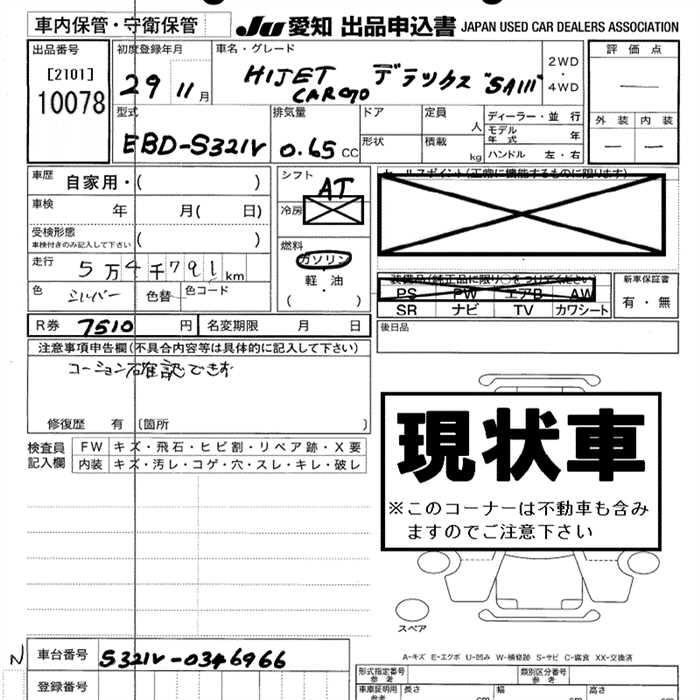 車内保管・守衛保管
JU 愛知 出品申込書 JAPAN USED CAR DEALERS ASSOCIATION
出品番号
[2101]
10078
初度登録年月
29 11月
車名・グレード
HIJET デラックス "SAIII"
CARGO
2WD
・
4WD
評価点
—
外装 内装
— —
型式
EBD-S321V
排気量
0.65 CC
ドア
形状
定員
人
積載
kg
ディーラー・並行
モデル年式 年
ハンドル 左・右
車歴 自家用・( )
車検 年 月( 日)
受検形態
車検付きのみ記入して下さい ( )
走行 5万4千791km
色 シルバー 色替 色コード
シフト
AT
冷房
燃料
ガソリン
軽・油
( ・ )
セールスポイント(正常に機能するものに限ります)
装備品(純正品に限り○をつけてください)
PS PW エアB AW
SR ナビ TV カワシート
新車保証書
有・無
R券 7510 円 名変期限 月 日
後日品
注意事項申告欄(不具合内容等は具体的に記入して下さい)
コーション確認できず
修復歴 有 〔箇所 〕
検査員
記入欄
FW キズ・飛石・ヒビ割・リペア跡・X要
内装 キズ・汚レ・コゲ・穴・スレ・キレ・破レ
現状車
※このコーナーは不動車も含み
ますのでご注意下さい
スペア
A-キズ E-エクボ U-凹み W-補修跡 S-サビ C-腐食 XX-交換済
N
車台番号 S321V-0346966
登録番号
形式指定番号
参考
類別区分番号
参考
車庫証明用
参考
長さ cm
幅 cm
高さ cm